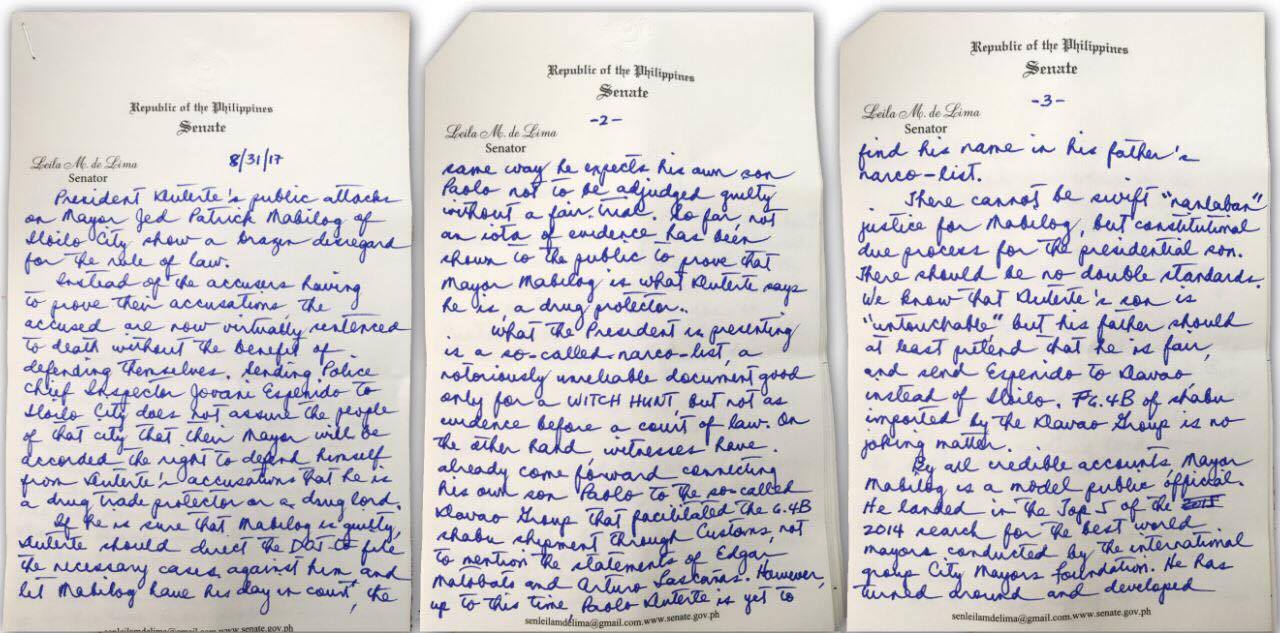 Republic of the Philippines
Senate
Leila M. de Lima
Senator
8/31/17
President Duterte's public attacks
on Mayor Jed Patrick Mabilog of
Iloilo City show a brazen disregard
for the rule of law.
Instead of the accusers having
to prove their accusations, the
accused are now virtually sentenced
to death without the benefit of
defending themselves. Sending Police
Chief Inspector Jovani Espenido to
Iloilo City does not assure the people
of that city that their Mayor will be
accorded the right to defend himself
from Duterte's accusations that he is
a drug trade protector or a drug lord.
If he is sure that Mabilog is guilty,
Duterte should direct the DOJ to file
the necessary cases against him and
let Mabilog have his day in court, the
senleilamdelima@gmail.com.www.senate.gov.ph
Republic of the Philippines
Senate
-2-
Leila M. de Lima
Senator
same way he expects his own son
Paolo not to be adjudged guilty
without a fair trial. So far, not
an iota of evidence has been
shown to the public to prove that
Mayor Mabilog is what Duterte says
he is, a drug protector.
What the President is presenting
is a so-called narco-list, a
notoriously unreliable document good
only for a WITCH HUNT, but not as
evidence before a court of law. On
the other hand, witnesses have
already come forward connecting
his own son Paolo to the so-called
Davao Group that facilitated the 6.4B
shabu shipment through Customs, not
to mention the statements of Edgar
Matobato and Arturo Lascañas. However,
up to this time Paolo Duterte is yet to
senleilamdelima@gmail.com.www.senate.gov.ph
Republic of the Philippines
Senate
-3-
Leila M. de Lima
Senator
find his name in his father's
narco-list.
There cannot be swift "nanlaban"
justice for Mabilog, but constitutional
due process for the presidential son.
There should be no double standards.
We know that Duterte's son is
"untouchable" but his father should
at least pretend that he is fair,
and send Espenido to Davao,
instead of Iloilo. ₱6.4B of shabu
imported by the Davao Group is no
joking matter.
By all credible accounts, Mayor
Mabilog is a model public official.
He landed in the Top 5 of the
2014 search for the best world
mayors conducted by the international
group City Mayors Foundation. He has
turned around and developed
senleilamdelima@gmail.com.www.senate.gov.ph